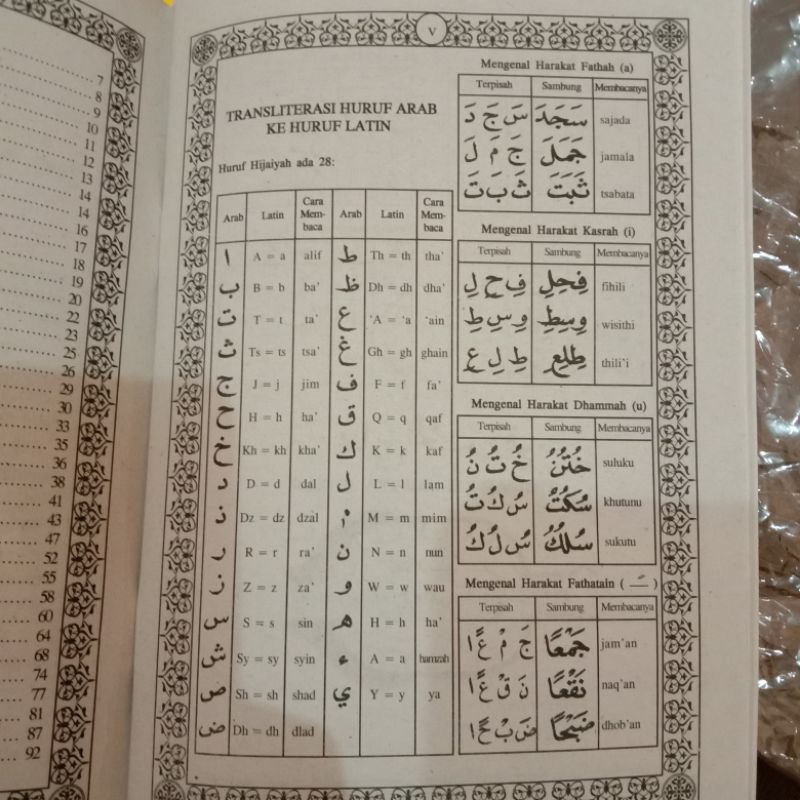 7
8
9
10
11
12
13
14
14
16
17
18
19
20
22
23
25
26
29
30
33
35
36
38
41
43
47
52
55
58
60
64
68
74
77
81
87
92
V
TRANSLITERASI HURUF ARAB
KE HURUF LATIN
Huruf Hijaiyah ada 28:
Arab Latin Cara Mem-baca Arab Latin Cara Mem-baca
ا A = a alif ط Th = th tha'
ب B = b ba' ظ Dh = dh dha'
ت T = t ta' ع 'A = 'a 'ain
ث Ts = ts tsa' غ Gh = gh ghain
ج J = j jim ف F = f fa'
ح H = h ha' ق Q = q qaf
خ Kh = kh kha' ك K = k kaf
د D = d dal ل L = l lam
ذ Dz = dz dzal م M = m mim
ر R = r ra' ن N = n nun
ز Z = z za' و W = w wau
س S = s sin ه H = h ha'
ش Sy = sy syin ء A = a hamzah
ص Sh = sh shad ي Y = y ya
ض Dh = dh dlad
Mengenal Harakat Fathah (a)
Terpisah Sambung Membacanya
سَ جَ دَ سَجَدَ sajada
جَ مَ لَ جَمَلَ jamala
ثَ بَ تَ ثَبَتَ tsabata
Mengenal Harakat Kasrah (i)
Terpisah Sambung Membacanya
فِ حِ لِ فِحِلِ fihili
وِ سِ طِ وِسِطِ wisithi
طِ لِ عِ طِلِعِ thili'i
Mengenal Harakat Dhammah (u)
Terpisah Sambung Membacanya
خُ تُ نُ خُتُنُ suluku
سُ كُ تُ سُكُتُ khutunu
سُ لُ كُ سُلُكُ sukutu
Mengenal Harakat Fathatain ( ـً )
Terpisah Sambung Membacanya
جَ مْ عًا جَمْعًا jam'an
نَ قْ عًا نَقْعًا naq'an
ضَ بْ حًا ضَبْحًا dhob'an